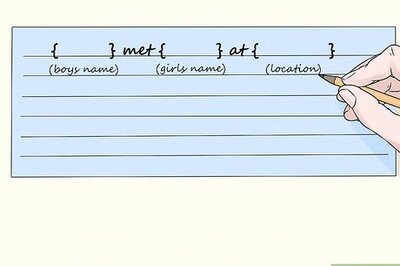 { } met { } at { }
(boys name) (girls name) (location)